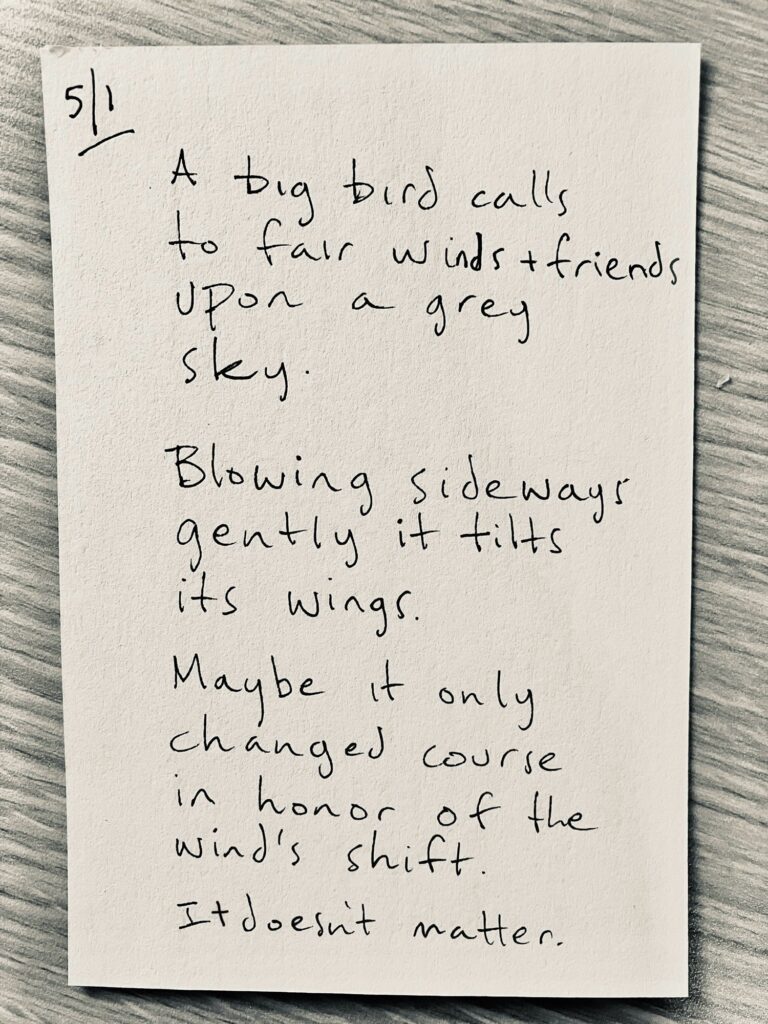 5/1
A big bird calls
to fair winds + friends
upon a grey
sky.
Blowing sideways
gently it tilts
its wings.
Maybe it only
changed course
in honor of the
wind's shift.
It doesn't matter.